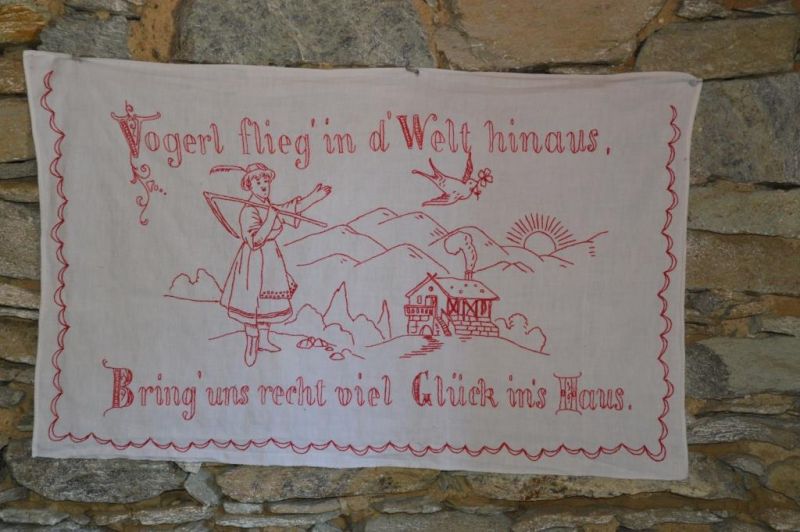 Vogerl flieg' in d' Welt hinaus,
Bring' uns recht viel Glück in's Haus.